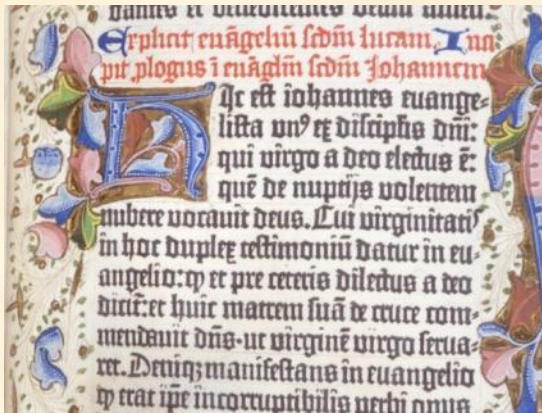 dantes et benedicentes deum amen.
Explicit euāgeliū scdm lucam. Inci
pit plogus ī euāgliū scdm Johannem
Hic est iohannes euange-
lista vnꝰ ex discipłis dnī:
qui virgo a deo electus ē:
quē de nuptijs volentem
nubere vocauit deus. Cui virginitatꝭ
in hoc duplex testimoniū datur in eu-
angelio: ꝙ et pre ceteris dilectus a deo
dicit᷑: et huic matrem suā de cruce com-
mendauit dn̄s· ut virginē virgo serua-
ret. Deniqꝫ manifestans in euangelio
ꝙ erat ip̄e incorruptibilis verbi opus